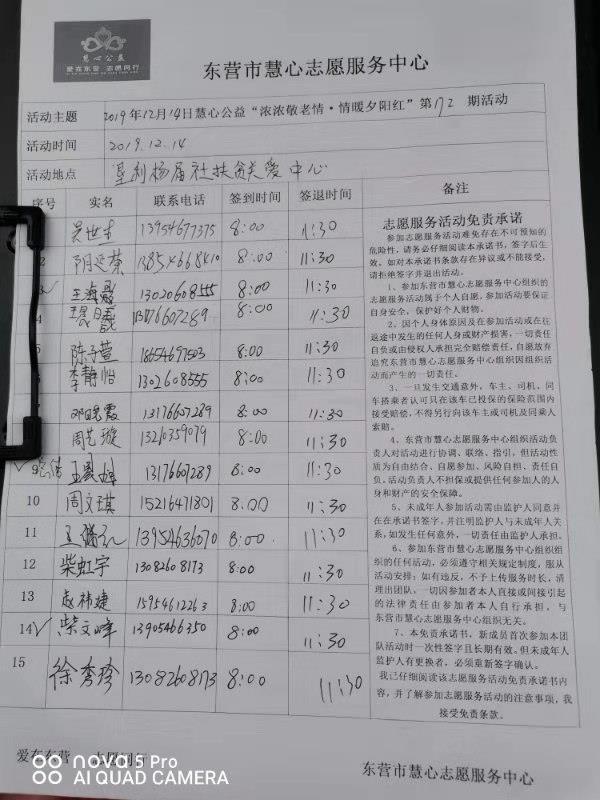 慧心公益
爱在东营 志愿同行
东营市慧心志愿服务中心
活动主题 2019年12月14日慧心公益“浓浓敬老情·情暖夕阳红”第172期活动
活动时间 2019.12.14
活动地点 垦利杨庙社扶贫关爱中心
序号 实名 联系电话 签到时间 签退时间 备注
吴世 13954677375 8:00 11:30
2 阴延荣 8:00 11:30
王海 13020608555 8:00 11:30
4 13176607289 8:00 11:30
5 陈子萱 18654697503 8:00 11:30
李静怡 1302608555 8:00 11:30
邓晓霞 13176607289 8:00 11:30
周艺璇 13210359079 8:00 11:30
9 13176607289 8:00 11:30
10 周文琪 15216471801 8:00 11:30
11 王 13954636070 8:00 11:30
12 柴虹宇 13082608173 8:00 11:30
13 赵祎婕 15954612263 8:00 11:30
14 柴文峰 13905466350 8:00 11:30
15 徐秀珍 13082608173 8:00 11:30
志愿服务活动免责承诺
参加志愿服务活动难免存在不可预知的
危险性，请务必仔细阅读本承诺书，签字后生
效。如对本承诺书条款存在异议或不能接受，
请拒绝签字并退出活动。
1、参加东营市慧心志愿服务中心组织的
志愿服务活动属于个人自愿，参加活动要保证
自身安全，保护好个人财物。
2、因个人身体原因及在参加活动或在往
返途中发生的任何人身或财产损害，一切责任
自负或由侵权人承担完全赔偿责任，自愿放弃
追究东营市慧心志愿服务中心因组织活
动而产生的一切责任。
3、一旦发生交通意外，车主、司机、同
车搭乘者认可只在该车已投保的保险范围内
接受赔偿，不得另行向该车主或司机及同乘人
索赔。
4、东营市慧心志愿服务中心组织活动负
责人对活动进行协调、联络、指引，但活动性
质为自由结合、自愿参加、风险自担、责任自
负。活动负责人不担保或提供任何参加人的人
身和财产的安全保障。
5、未成年人参加活动需由监护人同意并
在在承诺书签字，并注明监护人与未成年人关
系，如发生任何意外，一切责任由监护人承担。
6、参加东营市慧心志愿服务中心组织组
织的任何活动，必须遵守相关规定制度，服从
活动安排；如有违反，不予上传服务时长，清
理出团队。一切因参加者本人直接或间接引起
的法律责任由参加者本人自行承担，与
东营市慧心志愿服务中心组织无关。
7、本免责承诺书，新成员首次参加本团
队活动时一次性签字且长期有效。但未成年人
监护人有更换者，必须重新签字确认。
我已仔细阅读该志愿服务活动免责承诺书内
容，并了解参加志愿服务活动的注意事项，我
接受免责条款。
爱在东营 志愿同行
东营市慧心志愿服务中心
nova 5 Pro
AI QUAD CAMERA